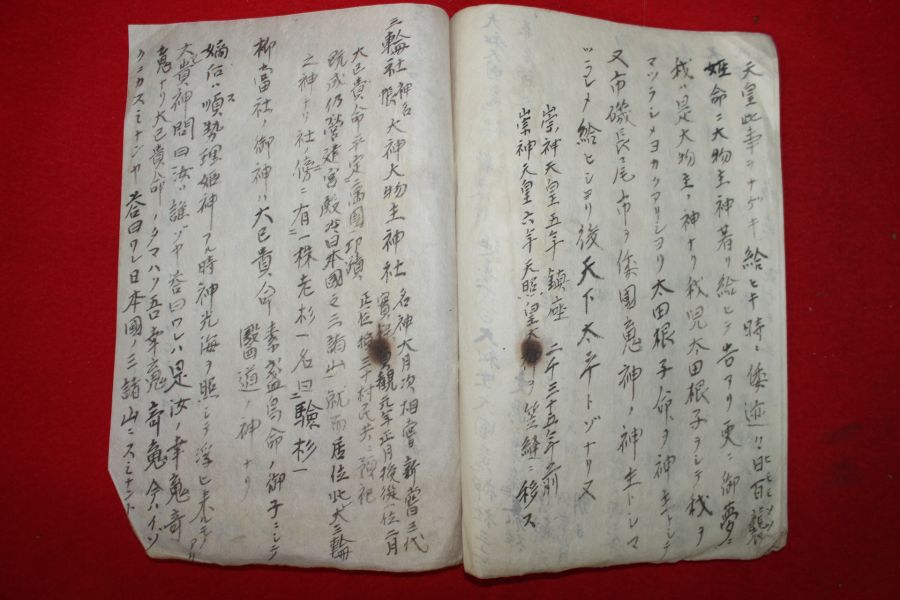 天皇此事ヲナゲキ給ヒキ時ニ倭迹々日百襲
姫命ニ大物主神著リ給ヒテ告アリ更ニ御夢ニ
我ハ是大物主ノ神ナリ我児太田根子ヲシテ我ヲ
マツラシメヨカクアリショリ太田根子命ヲ神主トシテ
又市磯長尾市ヲ倭國魂神ノ神主トシマ
ツラシメ給ヒショリ後天下太平トゾナリヌ
崇神天皇五年鎮座 二千三十五年前
崇神天皇六年天照皇大 ヲ笠縫ニ移ス
三輪社 神名帳 大神大物主神社 名神大月次相嘗新嘗三代
實 貞観元年正月 従一位二月
正位 三十村民共ニ預祀
大己貴命平定當國 
既成仍營建宮殿於日本國之三諸山就而居位此大三輪
之神ナリ社ノ傍ニ有一株老杉一名曰驗杉一
柳當社ノ御神ハ大己貴命 素盞烏命ノ御子ニシテ
醫道ノ神ナリ
嫡后ハ須勢理姫神フル時神光海ヲ照シテ浮ヒ来ルモ アリ
大貴神問曰汝ハ誰ゾヤ答曰ワレハ是汝ノ幸魂奇
魂ナリ大己貴命ノタマハク吾幸魂奇魂今ハイヅ
クニカスミナンヤ答曰ワレ日本國ノ三諸山ニスミナント